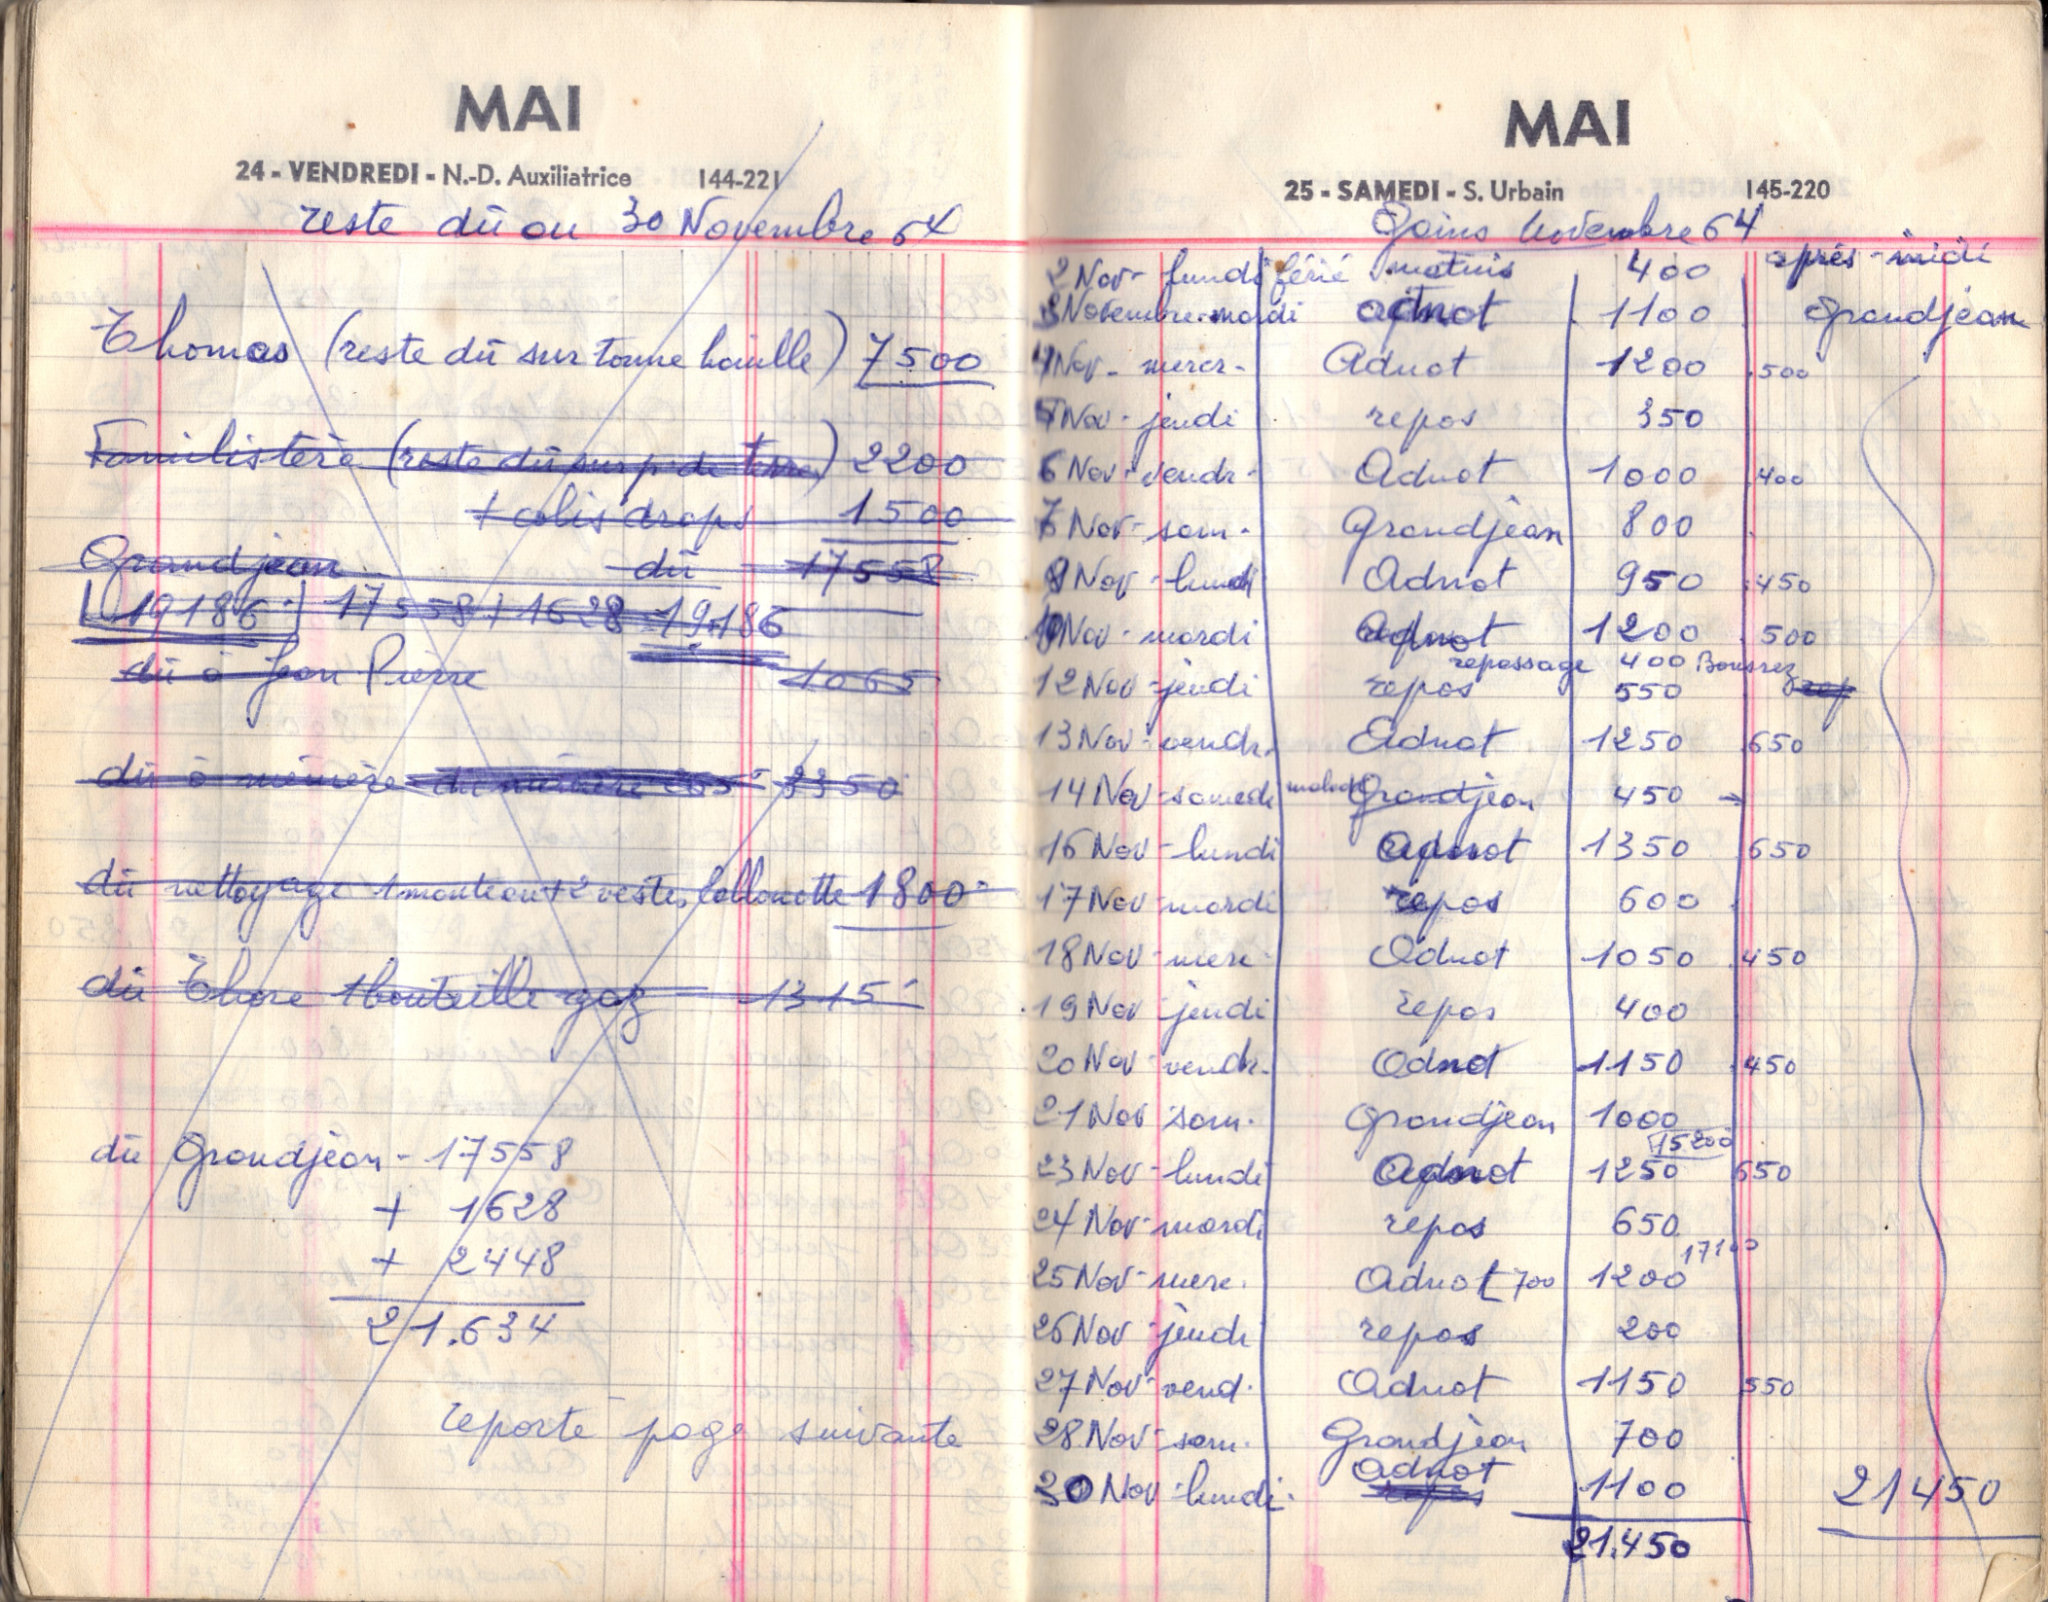 MAI
24 - VENDREDI - N.-D. Auxiliatrice 144-221
reste dû au 30 Novembre 64
Thomas (reste dû sur tonne houille) 7500
Familistère (reste dû sur p. de terre) 2200
+ colis draps 1500
Grandjean dû 17558
19186 17558 + 1628 19.186
dû à Jean Pierre 1065
dû à mémère 3350
dû nettoyage 1 manteau + 2 vestes 1800
dû Thore 1 bouteille gaz 1315
dû Grandjean - 17558
+ 1628
+ 2448
21.634
reporté page suivante
MAI
25 - SAMEDI - S. Urbain 145-220
Gains Novembre 64
2 Nov - lundi férié matins 400 après-midi
3 Novembre. mardi adnot 1100 Grandjean
4 Nov - mercr - Adnot 1200 500
5 Nov - jeudi repos 350
6 Nov - vendr - Adnot 1000 400
7 Nov - sam - Grandjean 800
9 Nov - lundi Adnot 950 450
10 Nov - mardi Adnot 1200 500
repassage 400
12 Nov - jeudi repos 550 rep
13 Nov - vendr. Adnot 1250 650
14 Nov - samedi malade Grandjean 450
16 Nov - lundi Adnot 1350 650
17 Nov - mardi repos 600
18 Nov - merc - Adnot 1050 450
19 Nov - jeudi repos 400
20 Nov - vendr. Adnot 1150 450
21 Nov sam. Grandjean 1000
15200
23 Nov - lundi Adnot 1250 650
24 Nov - mardi repos 650
17100
25 Nov - merc. Adnot 700 1200
26 Nov - jeudi repos 200
27 Nov - vend. Adnot 1150 550
28 Nov - sam. Grandjean 700
adnot
30 Nov - lundi. repos 1100 21450
21.450